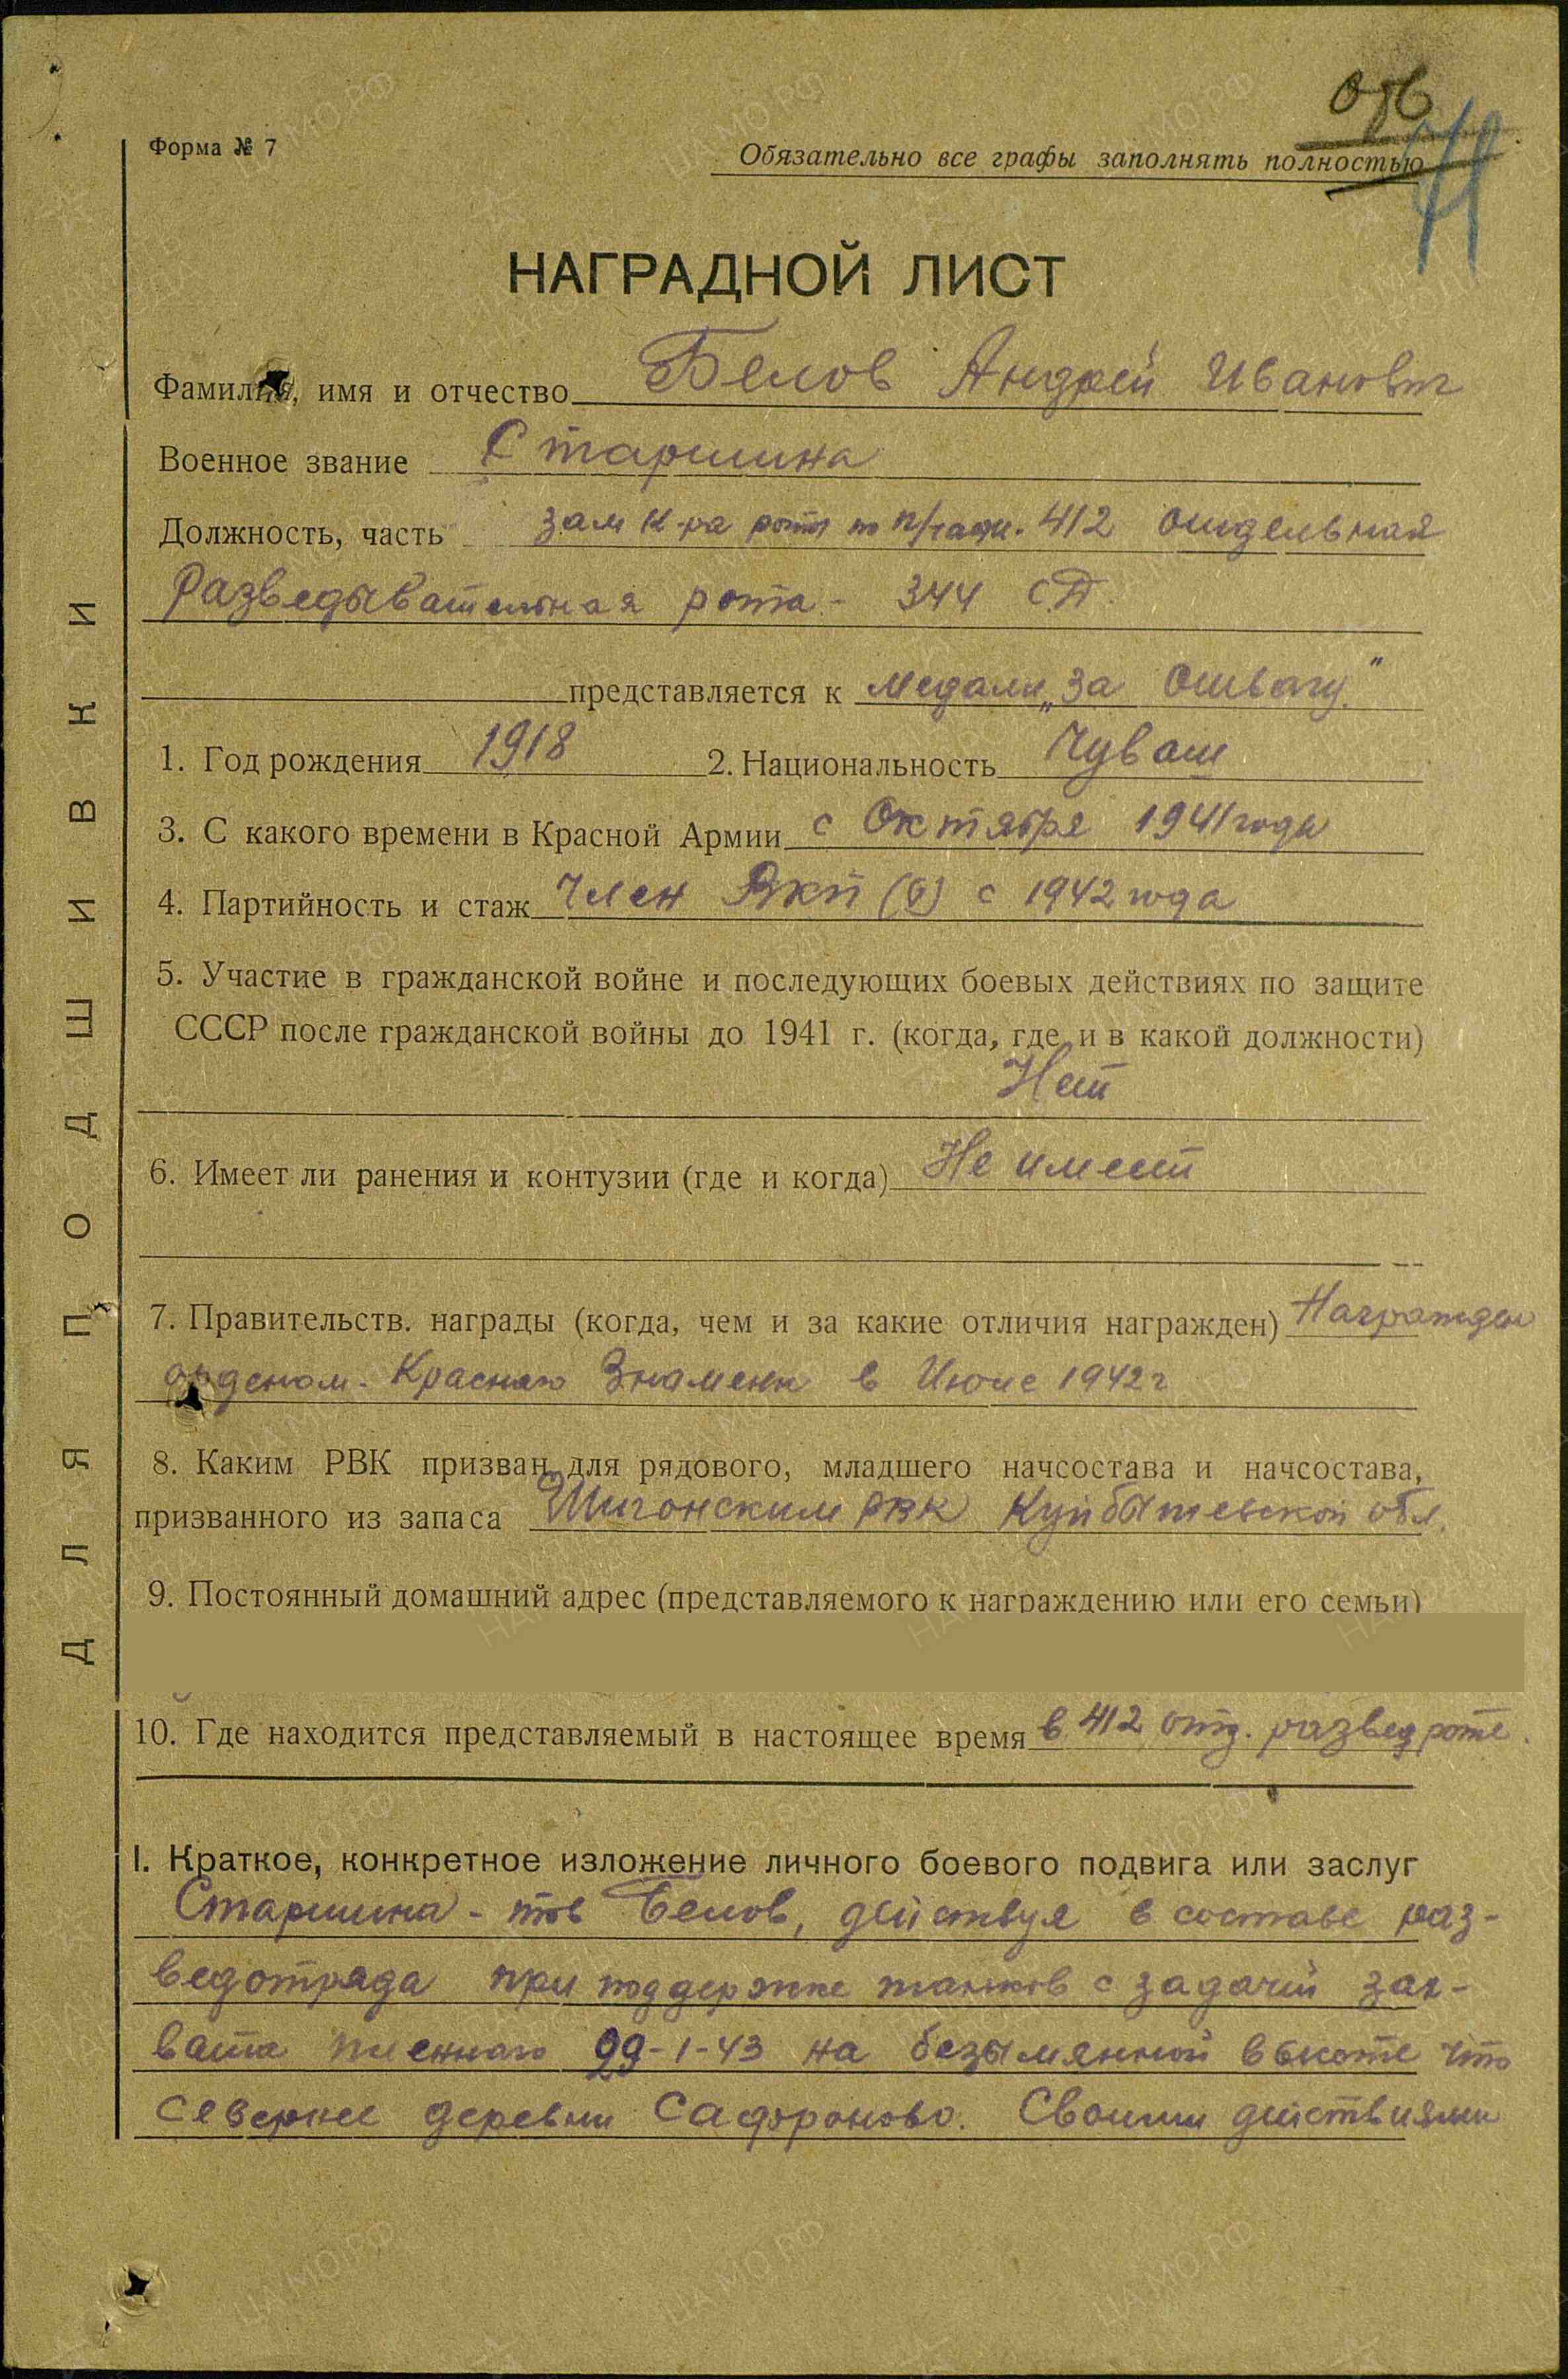 Форма № 7
Обязательно все графы заполнять полностью
НАГРАДНОЙ ЛИСТ
Фамилия, имя и отчество Белов Андрей Иванович
Военное звание Старшина
Должность, часть зам к-ра роты по п/части. 412 отдельная
Разведывательная рота - 344 СД.
представляется к медали „За Отвагу."
1. Год рождения 1918 2. Национальность Чуваш
3. С какого времени в Красной Армии с Октября 1941 года
4. Партийность и стаж Член ВКП(б) с 1942 года
5. Участие в гражданской войне и последующих боевых действиях по защите
СССР после гражданской войны до 1941 г. (когда, где и в какой должности)
Нет
6. Имеет ли ранения и контузии (где и когда) Не имеет
7. Правительств. награды (когда, чем и за какие отличия награжден) Награжден
орденом. Красного Знамени в Июле 1942 г
8. Каким РВК призван для рядового, младшего начсостава и начсостава,
призванного из запаса Шигонским РВК Куйбышевской обл.
9. Постоянный домашний адрес (представляемого к награждению или его семьи)
10. Где находится представляемый в настоящее время в 412 отд. разведроте.
I. Краткое, конкретное изложение личного боевого подвига или заслуг
Старшина - тов Белов, действуя в составе раз-
ведотряда при поддержке танков с задачей зах-
вата пленного 29-1-43 на безымянной высоте что
севернее деревни Сафроново. Своими действиями
ДЛЯ ПОДШИВКИ
ЦАМО.РФ